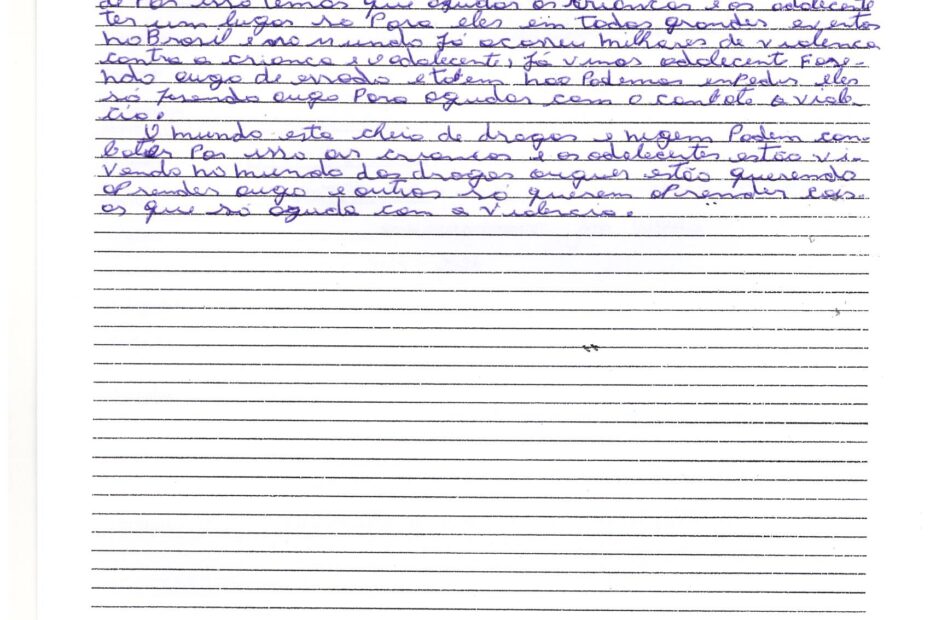 de Por isso temos que agudar as crianças e os adolecente
ter um lugar so Para eles em todos grandes eventos
no Brasil e no mundo Já ocorreu milhares de violença
contra a criança e o adolecente, Já vimos adolecent Faze-
ndo augo de errado e totem nao Podemos inpedir eles
só fazendo augo Para agudar com o conbate a viole-
cia.
O mundo esta cheio de drogas e nigem Podem con-
bater Por isso as crianças e os adolecentes estão vi-
vendo no mundo das drogas augues estão querendo
aPrender augo e outros só querem aPrender cois-
as que só aguda com a violencia.